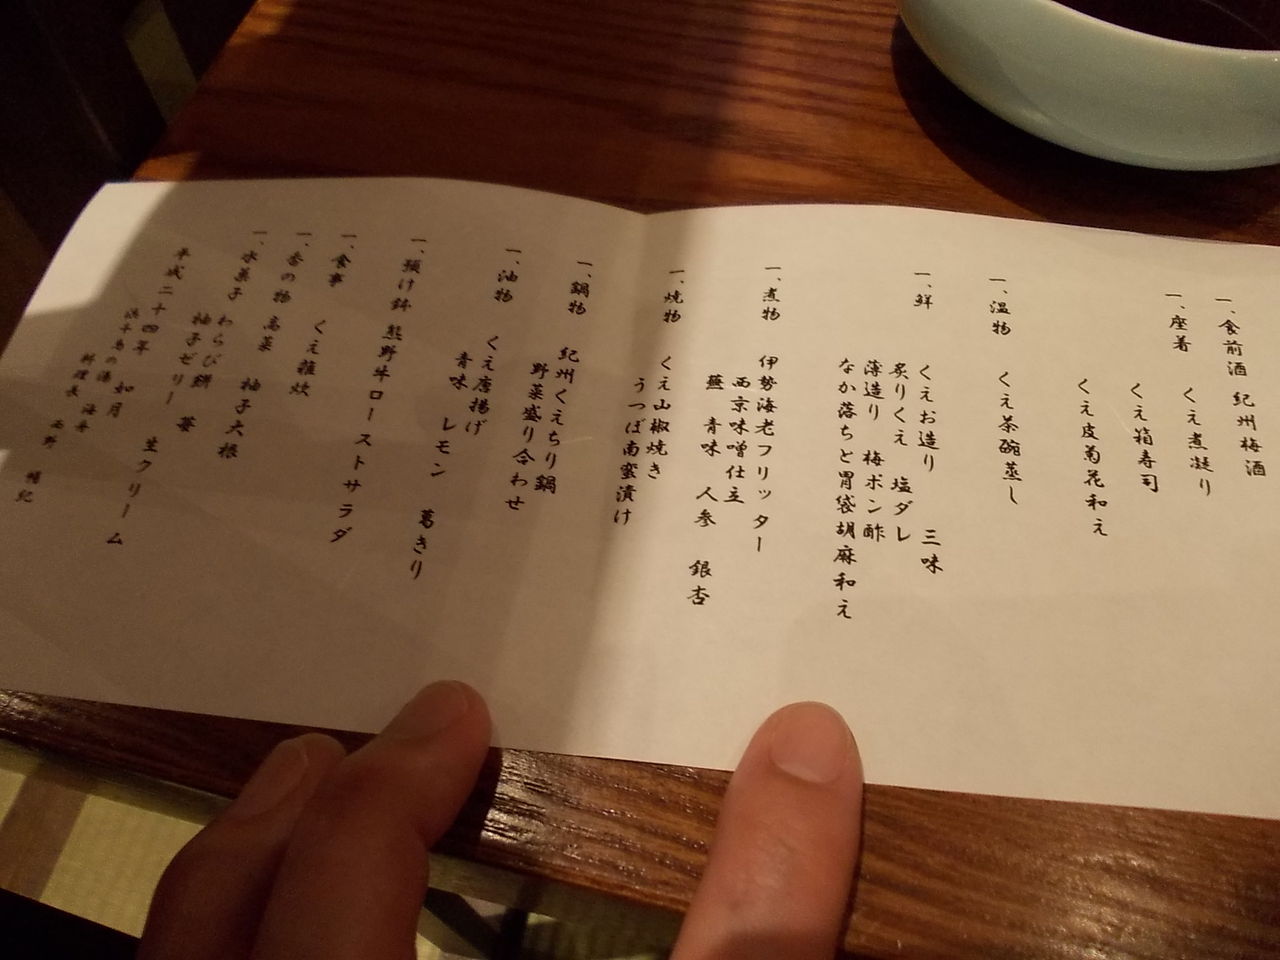 一、食前酒 紀州梅酒
一、座着 くえ煮凝り
くえ箱寿司
くえ皮菊花和え
一、温物 くえ茶碗蒸し
一、鮮 くえお造り 三味
炙りくえ 塩ダレ
薄造り 梅ポン酢
なか落ちと胃袋胡麻和え
一、煮物 伊勢海老フリッター
西京味噌仕立
蕪 青味 人参 銀杏
一、焼物 くえ山椒焼き
うつぼ南蛮漬け
一、鍋物 紀州くえちり鍋
野菜盛り合わせ
一、油物 くえ唐揚げ
青味 レモン 葛きり
一、預け鉢 熊野牛ローストサラダ
一、食事 くえ雑炊
一、香の物 高菜 柚子大根
一、水菓子 わらび餅
柚子ゼリー 苺 生クリーム
平成二十四年 如月
浜千鳥の湯 海舟
料理長 西野